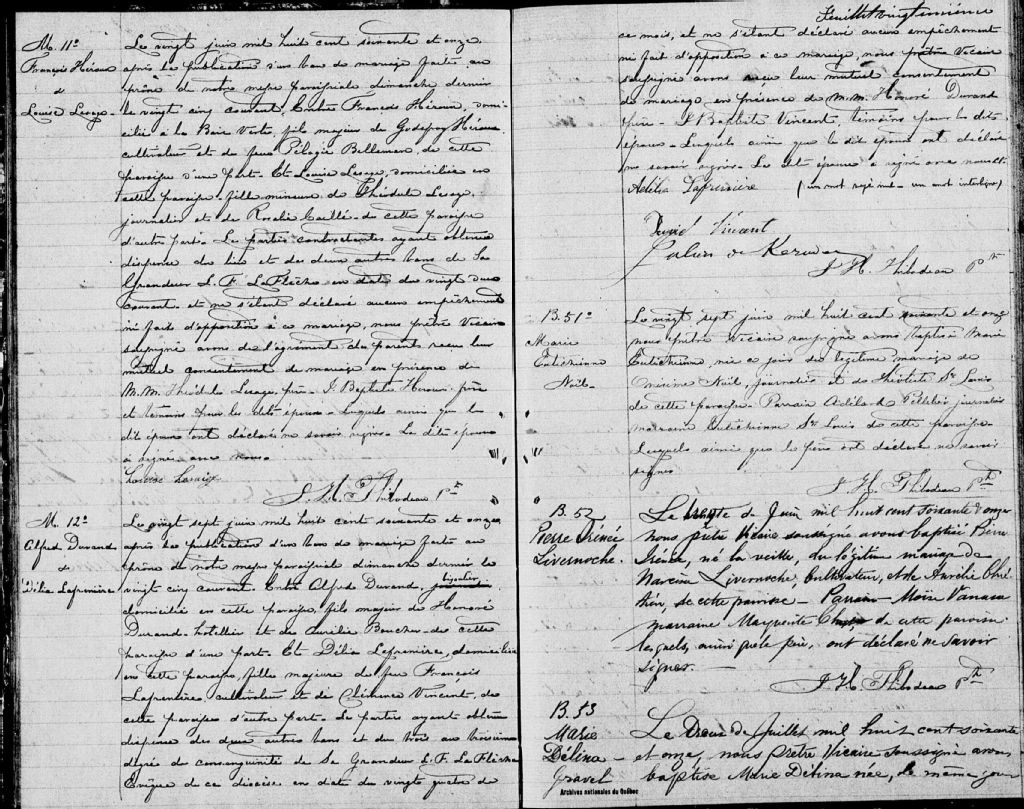 M. 11e
François Héroux
&
Louise Lesage
Le vingt juin mil huit cent soixante et onze,
après la publication d'un ban de mariage faite au
prône de notre messe paroissiale dimanche dernier
le vingt cinq courant, Entre François Héroux, domi-
cilié à la Baie Verte, fils majeur de Godefroy Héroux
cultivateur et de feue Pélagie Bellemare, de cette
paroisse d'une part. Et Louise Lesage, domiciliée en
cette paroisse, fille mineure de Théodule Lesage
journalier et de Rosalie Caillé de cette paroisse
d'autre part. Les parties contractantes ayant obtenu
dispense du lien et des deux autres bans de Sa
Grandeur L. F. LaFlèche en date du vingt
courant, et ne s'étant déclaré aucun empêchement
ni fait d'opposition à ce mariage, nous prêtre Vicaire
soussigné avons de l'agrément des parents recu leur
mutuel consentement de mariage en présence de
M.M. Théodule Lesage, père - J. Baptiste Héroux père
et témoins pour les dits époux - lesquels ainsi que le
dit époux ont déclaré ne savoir signer. La dite épouse
a signée avec nous.
J. H. Thibodeau Ptre
M. 12e
Alfred Durand
&
Délia Lafrenière
Le vingt sept juin mil huit cent soixante et onze,
après la publication d'un ban de mariage faite au
prône de notre messe paroissiale dimanche dernier le
vingt cinq courant. Entre Alfred Durand,
domicilié en cette paroisse, fils majeur de Honoré
Durand hotellier et de Aurélie Boucher de cette
paroisse d'une part. Et Délia Lafrenière, domiciliée
en cette paroisse, fille majeure de feu François
Lafrenière, cultivateur et de Clémence Vincent, de
cette paroisse d'autre part. Les parties ayant obtenu
dispense des deux autres bans et du trois au troisième
degré de consanguinité de Sa Grandeur L. F. LaFlèche
Evêque de ce diocèse en date du vingt quatre de
Feuillet vingtième
ce mois, et ne s'étant déclaré aucun empêchement
ni fait d'opposition à ce mariage, nous prêtre Vicaire
soussigné avons recu leur mutuel consentement
de mariage en présence de M.M. Honoré Durand
père - J Baptiste Vincent, témoins pour les dits
époux - Lesquels ainsi que le dit époux ont déclaré
ne savoir signer. La dite épouse a signé avec nous
Délia Lafrenière (un mot rayé nul - un mot interligne)
David Vincent
J. H. Thibodeau Ptre
B. 51e
Marie
Eutichienne
Noël
Le vingt sept juin mil huit cent soixante et onze
nous prêtre Vicaire soussigné avons baptisé Marie
Eutichienne, née ce jour du légitime mariage de
Onésime Noël, journalier et de Théotiste St Louis
de cette paroisse. Parrain Adélard Pelletier journalier
marraine Eutichienne St Louis de cette paroisse
Lesquels ainsi que le père ont déclaré ne savoir
signer
J. H. Thibodeau Ptre
B. 52
Pierre Irénée
Livernoche.
Le trente de Juin mil huit cent soixante & onze
nous prêtre Vicaire soussigné avons baptisé Pierre
Irénée, né la veille, du légitime mariage de
Narcisse Livernoche, Cultivateur, et de Aurélie Chré-
tien, de cette paroisse - Parrain - Moïse Vanasse
marraine Marguerite de cette paroisse
lesquels, ainsi que le père, ont déclaré ne savoir
signer.
J. H. Thibodeau Ptre
B. 53
Marie
Délina
Gravel
Le Deux de Juillet mil huit cent soixante
et onze, nous Prêtre Vicaire Soussigné avons
baptisé Marie Délina née, le même jour
Archives nationales du Québec